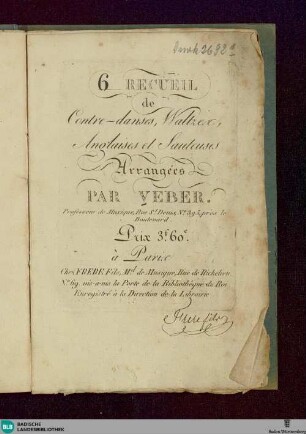 6 RECUEIL
de
Contre-danses, Waltzes,
Anglaises et Sauteuses
Arrangées
PAR VEBER.
Professeur de Musique, Rue St. Denis, No. 395, près le
Boulevard
Prix 3f. 60c.
à Paris
Chez FRERE Fils, Md. de Musique, Rue de Richelieu
No. 69, vis-à-vis la Porte de la Bibliothèque du Roi
Enregistré à la Direction de la Librairie
frere fils
BLB BADISCHE
LANDESBIBLIOTHEK
Baden-Württemberg